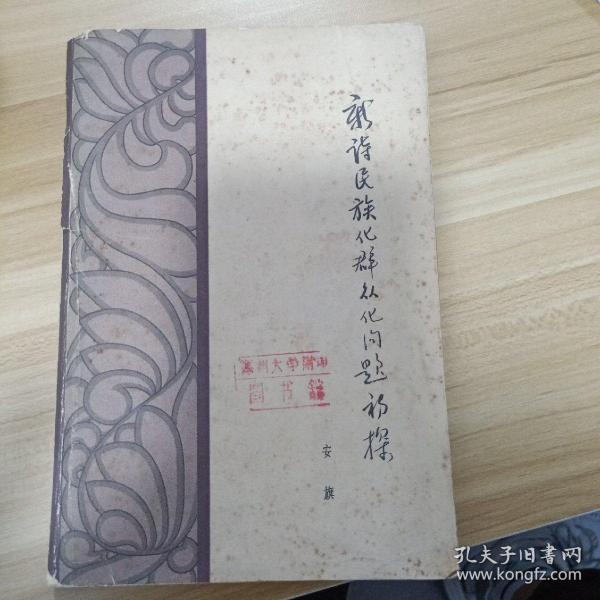 新诗民族化群众化问题初探
大学附中
图书馆
安旗
孔夫子旧书网
www.kongfz.com